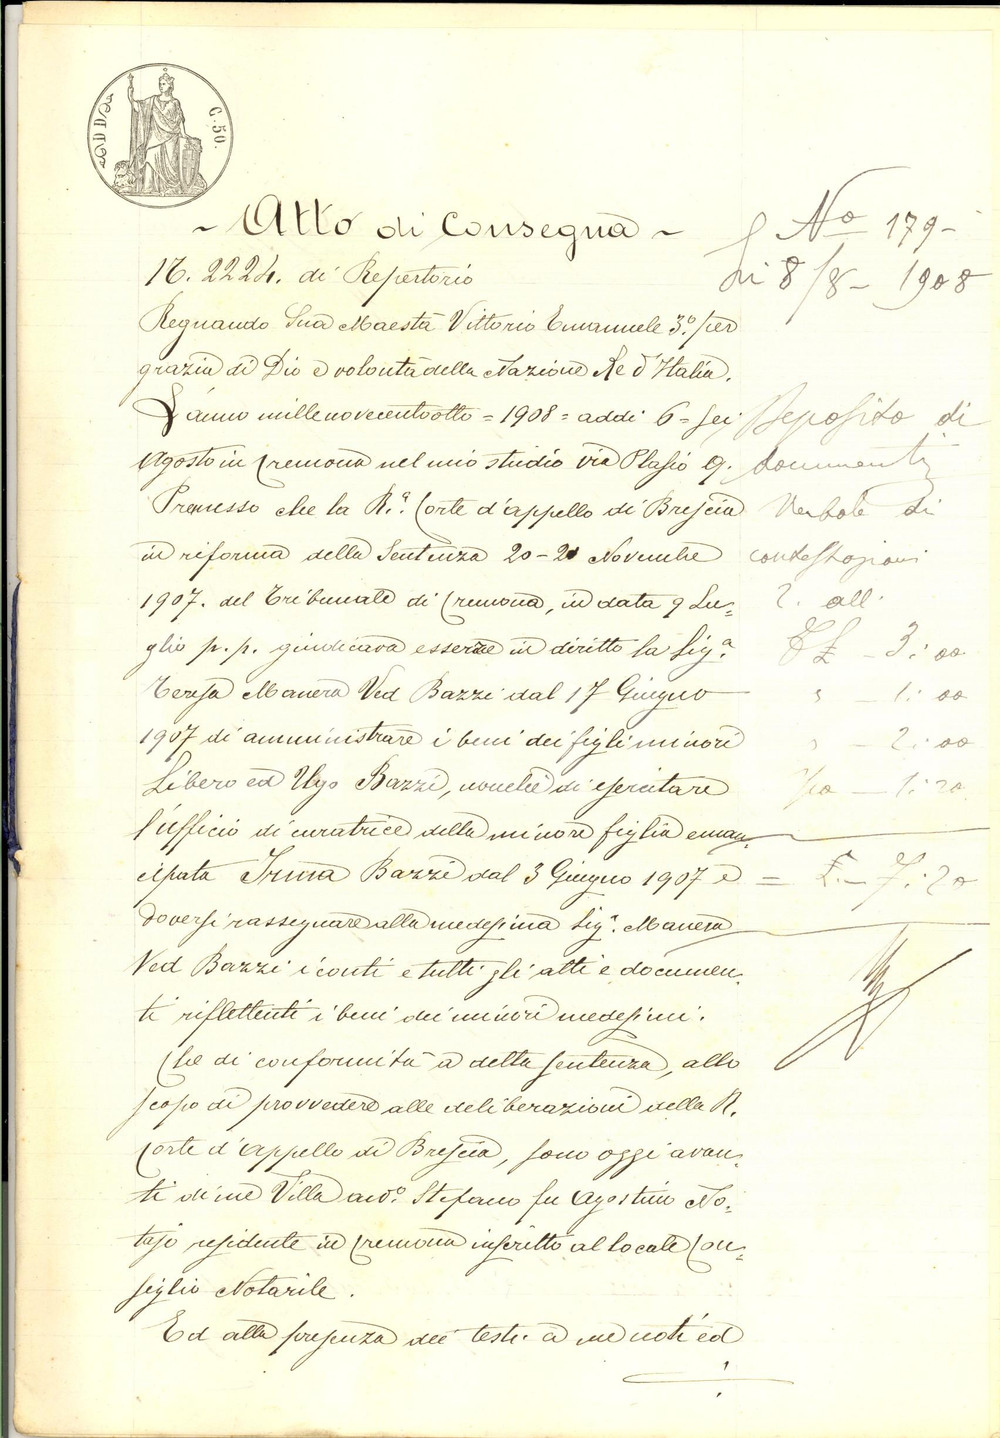 C. 50.
~ Atto di Consegna ~
N. 2224. di Repertorio
Regnando Sua Maestà Vittorio Emanuele 3.º per
grazia di Dio e volontà della Nazione Re d'Italia.
L'anno millenovecentootto = 1908 = addì 6 = sei
Agosto in Cremona nel mio studio via Plasio 9.
Premesso che la R.ª Corte d'appello di Brescia
in riforma della Sentenza 20-21 Novembre
1907. del Tribunale di Cremona, in data 9 Lu=
glio p. p. giudicava essere in diritto la Sig.ª
Teresa Manera Ved Bazzi dal 17 Giugno
1907 di amministrare i beni dei figli minori
Libero ed Ugo Bazzi, nonchè di esercitare
l'ufficio di curatrice della minore figlia eman=
cipata Irma Bazzi dal 3 Giugno 1907 e
doversi rassegnare alla medesima Sig.ª Manera
Ved Bazzi i conti e tutti gli atti e documen=
ti riflettenti i beni dei minori medesimi.
Che di conformità a detta sentenza, allo
scopo di provvedere alle deliberazioni della R.
Corte d'Appello di Brescia, sono oggi avan=
ti di me Villa avv.º Stefano fu Agostino No=
tajo residente in Cremona inscritto al locale Con=
siglio Notarile.
Ed alla presenza dei testi a me noti ed
Nº 179-
li 8/8- 1908
Deposito di
documenti
Verbale di
contestazioni
2. all.
£ - 3:00
" - 1:00
" - 2:00
- 1:20
= £.- 7:20